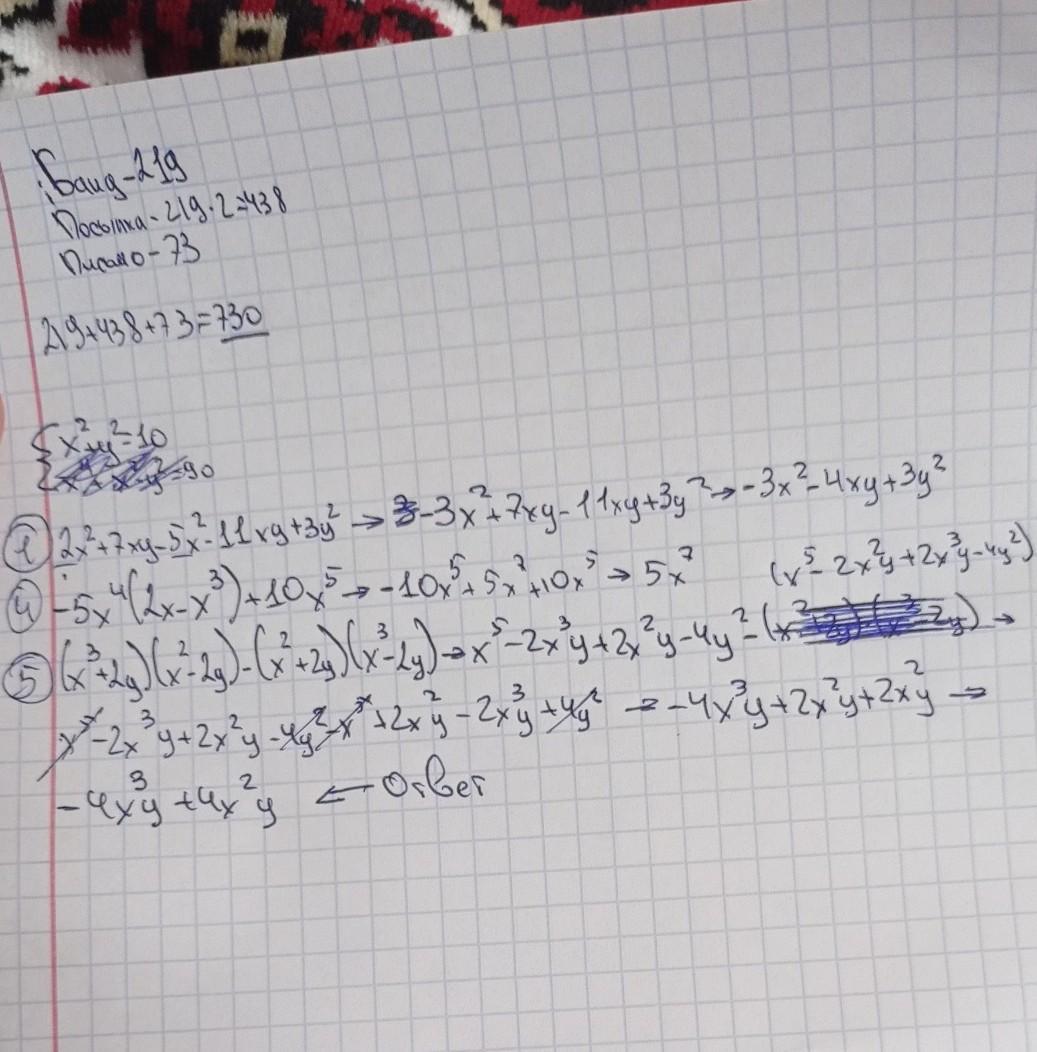 Банд-219
Посылка-219·2=438
Письмо-73
219+438+73=730
{x²+y²=10
=90
① 2x²+7xy-5x²-11xy+3y² → -3x²+7xy-11xy+3y² → -3x²-4xy+3y²
④ -5x⁴(2x-x³)+10x⁵ → -10x⁵+5x⁷+10x⁵ → 5x⁷ (x⁵-2x²y+2x³y-4y²)
⑤ (x³+2y)(x²-2y)-(x²+2y)(x³-2y) → x⁵-2x³y+2x²y-4y²- →
x⁵-2x³y+2x²y-4y²-x⁵+2x²y-2x³y+4y² → -4x³y+2x²y+2x²y →
-4x³y+4x²y ← Ответ